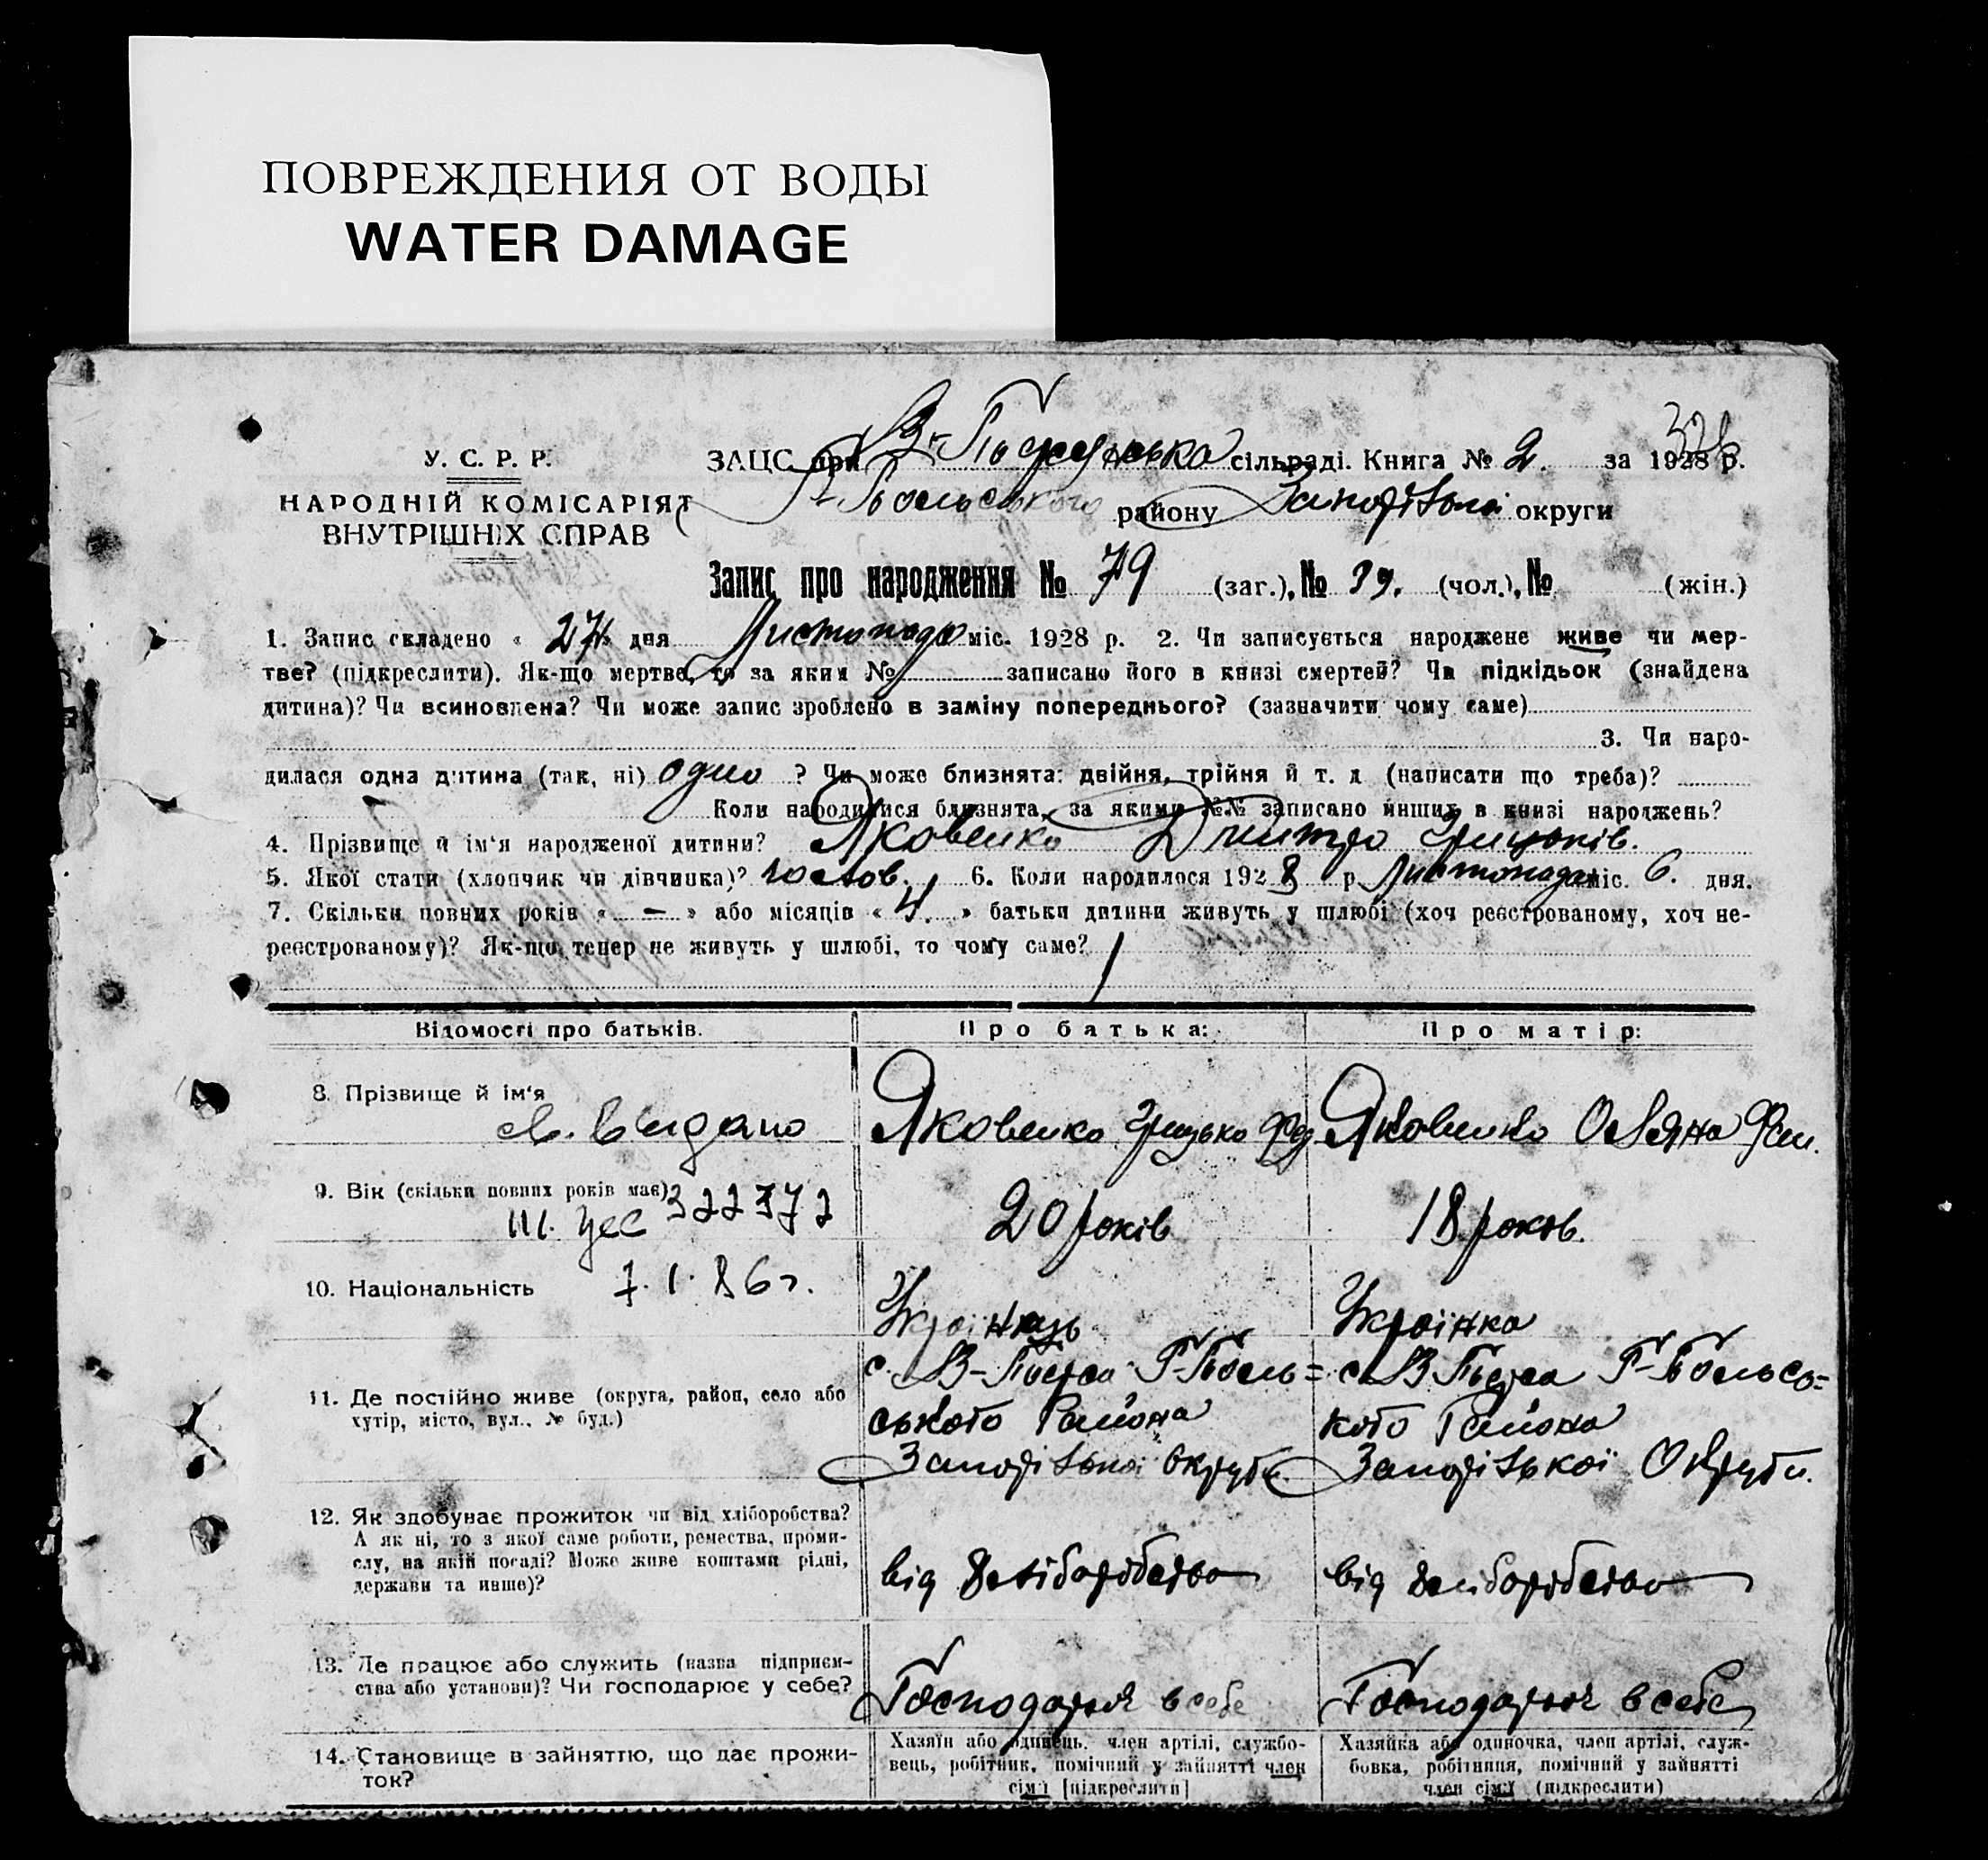 ПОВРЕЖДЕНИЯ ОТ ВОДЫ
WATER DAMAGE
У. С. Р. Р.
НАРОДНІЙ КОМІСАРІЯТ
ВНУТРІШНІХ СПРАВ
ЗАЦС при сільраді. Книга № 2. за 1928 р.
району округи
Запис про народження № 79 (заг.), № 39. (чол.), № (жін.)
1. Запис складено « 27 » дня Листопада міс. 1928 р. 2. Чи записується народжене живе чи мер-
тве? (підкреслити). Як-що мертве, то за яким № записано його в книзі смертей? Чи підкідьок (знайдена
дитина)? Чи всиновлена? Чи може запис зроблено в заміну попереднього? (зазначити чому саме)
3. Чи наро-
дилася одна дитина (так, ні) одно ? Чи може близнята: двійня, трійня й т. д (написати що треба)?
Коли народилися близнята, за якими №№ записано инших в книзі народжень?
4. Прізвище й ім'я народженої дитини? Яковенко Дмитро Грицьків.
5. Якої стати (хлопчик чи дівчинка)? 6. Коли народилося 1928 р. Листопада міс. 6. дня.
7. Скільки повних років « — » або місяців « 4. » батьки дитини живуть у шлюбі (хоч реєстрованому, хоч не-
реєстрованому)? Як-що тепер не живуть у шлюбі, то чому саме?
Відомості про батьків. Про батька: Про матір:
8. Прізвище й ім'я Яковенко Грицько Фед Яковенко Оляна
9. Вік (скільки повних років має) 20 років 18 років.
322372
10. Національність 7. 1. 86 г. Українець Українка
11. Де постійно живе (округа, район, село або
хутір, місто, вул., № буд.)
ського Района кого Района
Запорізької Округи. Запорізької Округи.
12. Як здобуває прожиток чи від хліборобства?
А як ні, то з якої саме роботи, ремества, проми-
слу, на якій посаді? Може живе коштами рідні,
держави та инше)?
від хліборобства від хліборобства
13. Де працює або служить (назва підприєм-
ства або установи)? Чи господарює у себе?
Господарює в себе Господарює в себе
14. Становище в зайняттю, що дає прожи-
ток?
Хазяїн або одинець, член артілі, службо-
вець, робітник, помічний у зайнятті член
сім'ї [підкреслити]
Хазяйка або одиночка, член артілі, служ-
бовка, робітниця, помічний у зайнятті
член сім'ї (підкреслити)